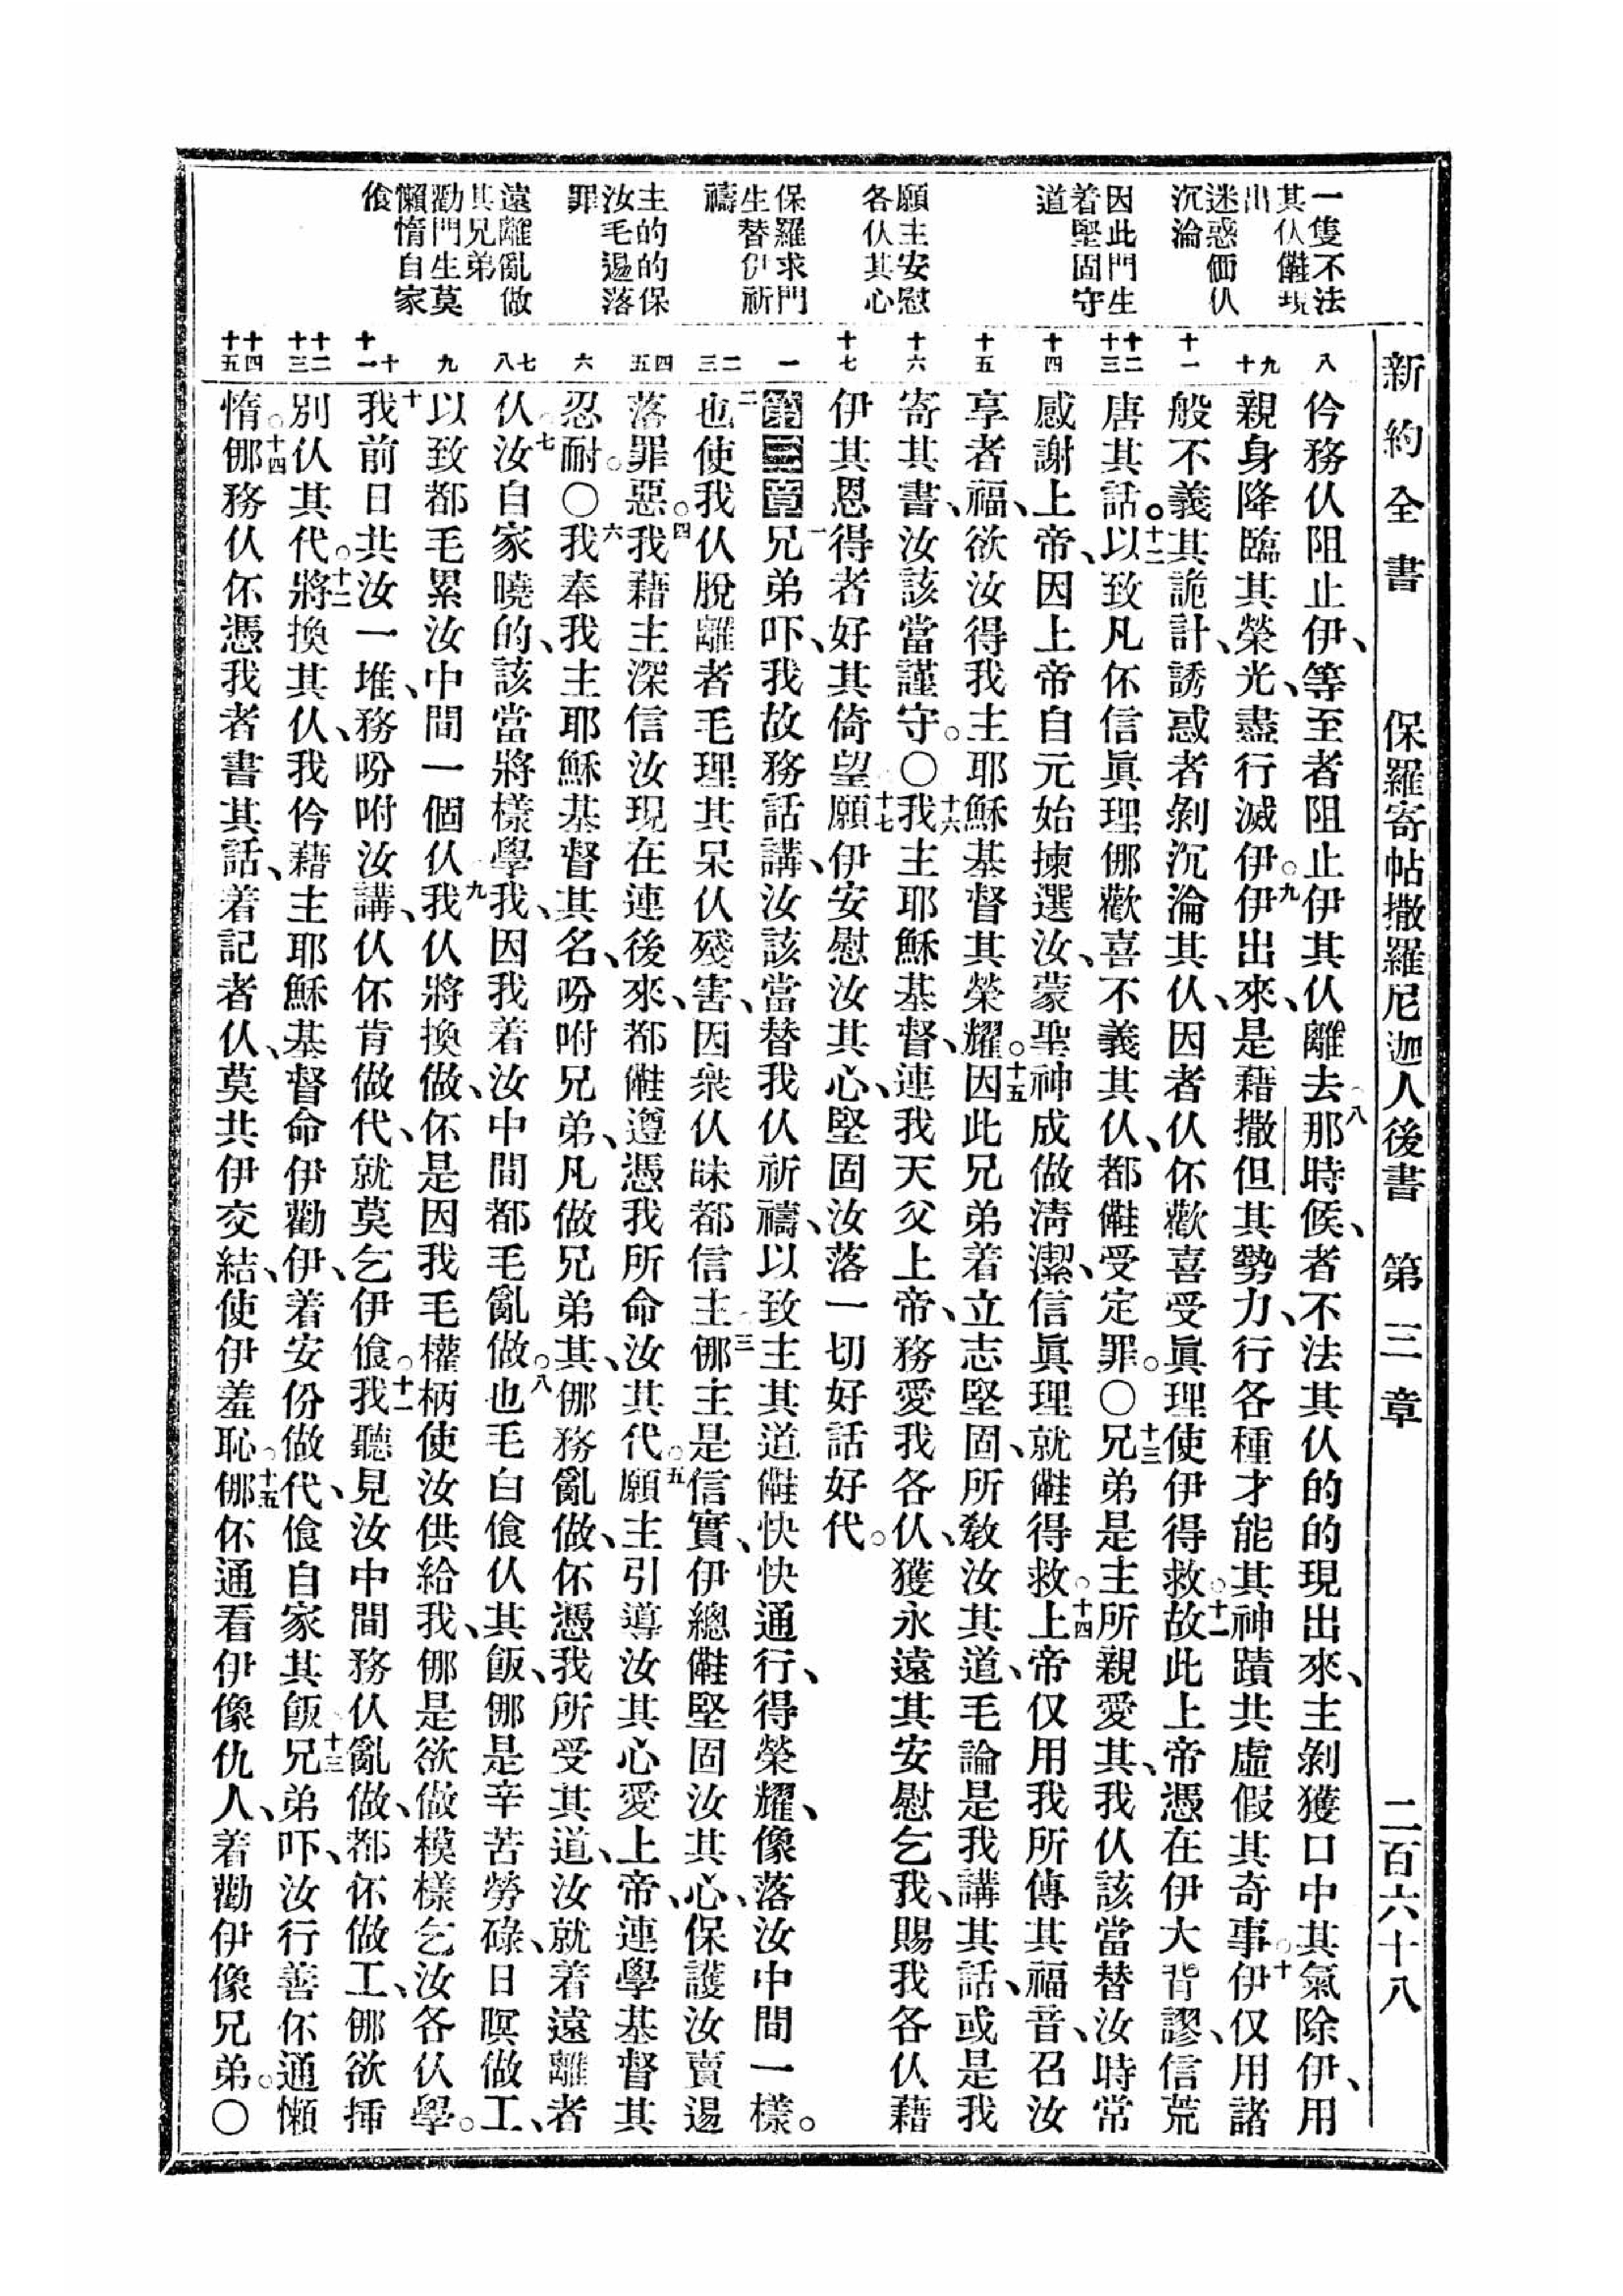 新約全書 保羅寄帖撒羅尼迦人後書 第三章 二百六十八
一隻不法
其仈儺現
出
迷惑価仈
沉淪
因此門生
着堅固守
道
願主安慰
各仈其心
保羅求門
生替伊祈
禱
主的的保
汝毛逷落
罪
遠離亂做
其兄弟
勸門生莫
懶惰自家
飧
八
九 十
十一
十二 十三
十四
十五
十六
十七
一
二 三
四 五
六
七 八
九
十 十一
十二 十三
十四 十五
仱務仈阻止伊、等至者阻止伊其仈離去○八那時候、者不法其仈的的現出來、主剝獲口中其氣除伊、用
親身降臨其榮光、盡行滅伊○九伊出來、是藉撒但其勢力、行各種才能其神蹟共虛假其奇事○十伊仅用諸
般不義其詭計、誘惑者剝沉淪其仈、因者仈伓歡喜受眞理使伊得救○十一故此上帝憑在伊大背謬、信荒
唐其話○十二以致凡伓信眞理㑚歡喜不義其仈、都儺受定罪○〇十三兄弟是主所親愛其、我仈該當替汝時常
感謝上帝、因上帝自元始揀選汝、蒙聖神成做淸潔、信眞理就儺得救○十四上帝仅用我所傳其福音、召汝
享者福、欲汝得我主耶穌基督其榮耀○十五因此兄弟着立志堅固、所教汝其道、毛論是我講其話、或是我
寄其書、汝該當謹守○〇十六我主耶穌基督、連我天父上帝、務愛我各仈、獲永遠其安慰乞我、賜我各仈藉
伊其恩得者好其倚望○十七願伊安慰汝其心、堅固汝落一切好話好代○
第三章 一兄弟吓、我故務話講、汝該當替我仈祈禱、以致主其道儺快快通行、得榮耀、像落汝中間一樣。
二也使我仈脫離者毛理其呆仈殘害、因衆仈昧都信主○三㑚主是信實、伊總儺堅固汝其心、保護汝賣逷
落罪惡○四我藉主深信汝現在連後來、都儺遵憑我所命汝其代○五願主引導汝其心愛上帝、連學基督其
忍耐○〇六我奉我主耶穌基督其名、吩咐兄弟、凡做兄弟其、㑚務亂做、伓憑我所受其道、汝就着遠離者
仈○七汝自家曉的、該當將樣學我、因我着汝中間都毛亂做○八也毛白飧仈其飯、㑚是辛苦勞碌、日暝做工、
以致都毛累汝中間一個仈○九我仈將換做、伓是因我毛權柄使汝供給我、㑚是欲做模樣乞汝各仈學。
十我前日共汝一堆、務吩咐汝講、仈伓肯做代、就莫乞伊飧○十一我聽見汝中間務仈亂做、都伓做工、㑚欲插
別仈其代○十二將換其仈、我仱藉主耶穌基督命伊勸伊、着安份做代、飧自家其飯○十三兄弟吓、汝行善伓通懶
惰○十四㑚務仈伓憑我者書其話、着記者仈、莫共伊交結、使伊羞恥○十五㑚伓通看伊像仇人、着勸伊像兄弟○〇